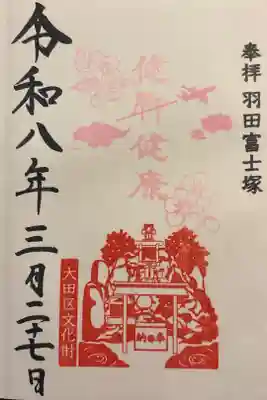 奉拝 羽田富士塚
健脚健康
大田区文化財
令和八年三月二十七日